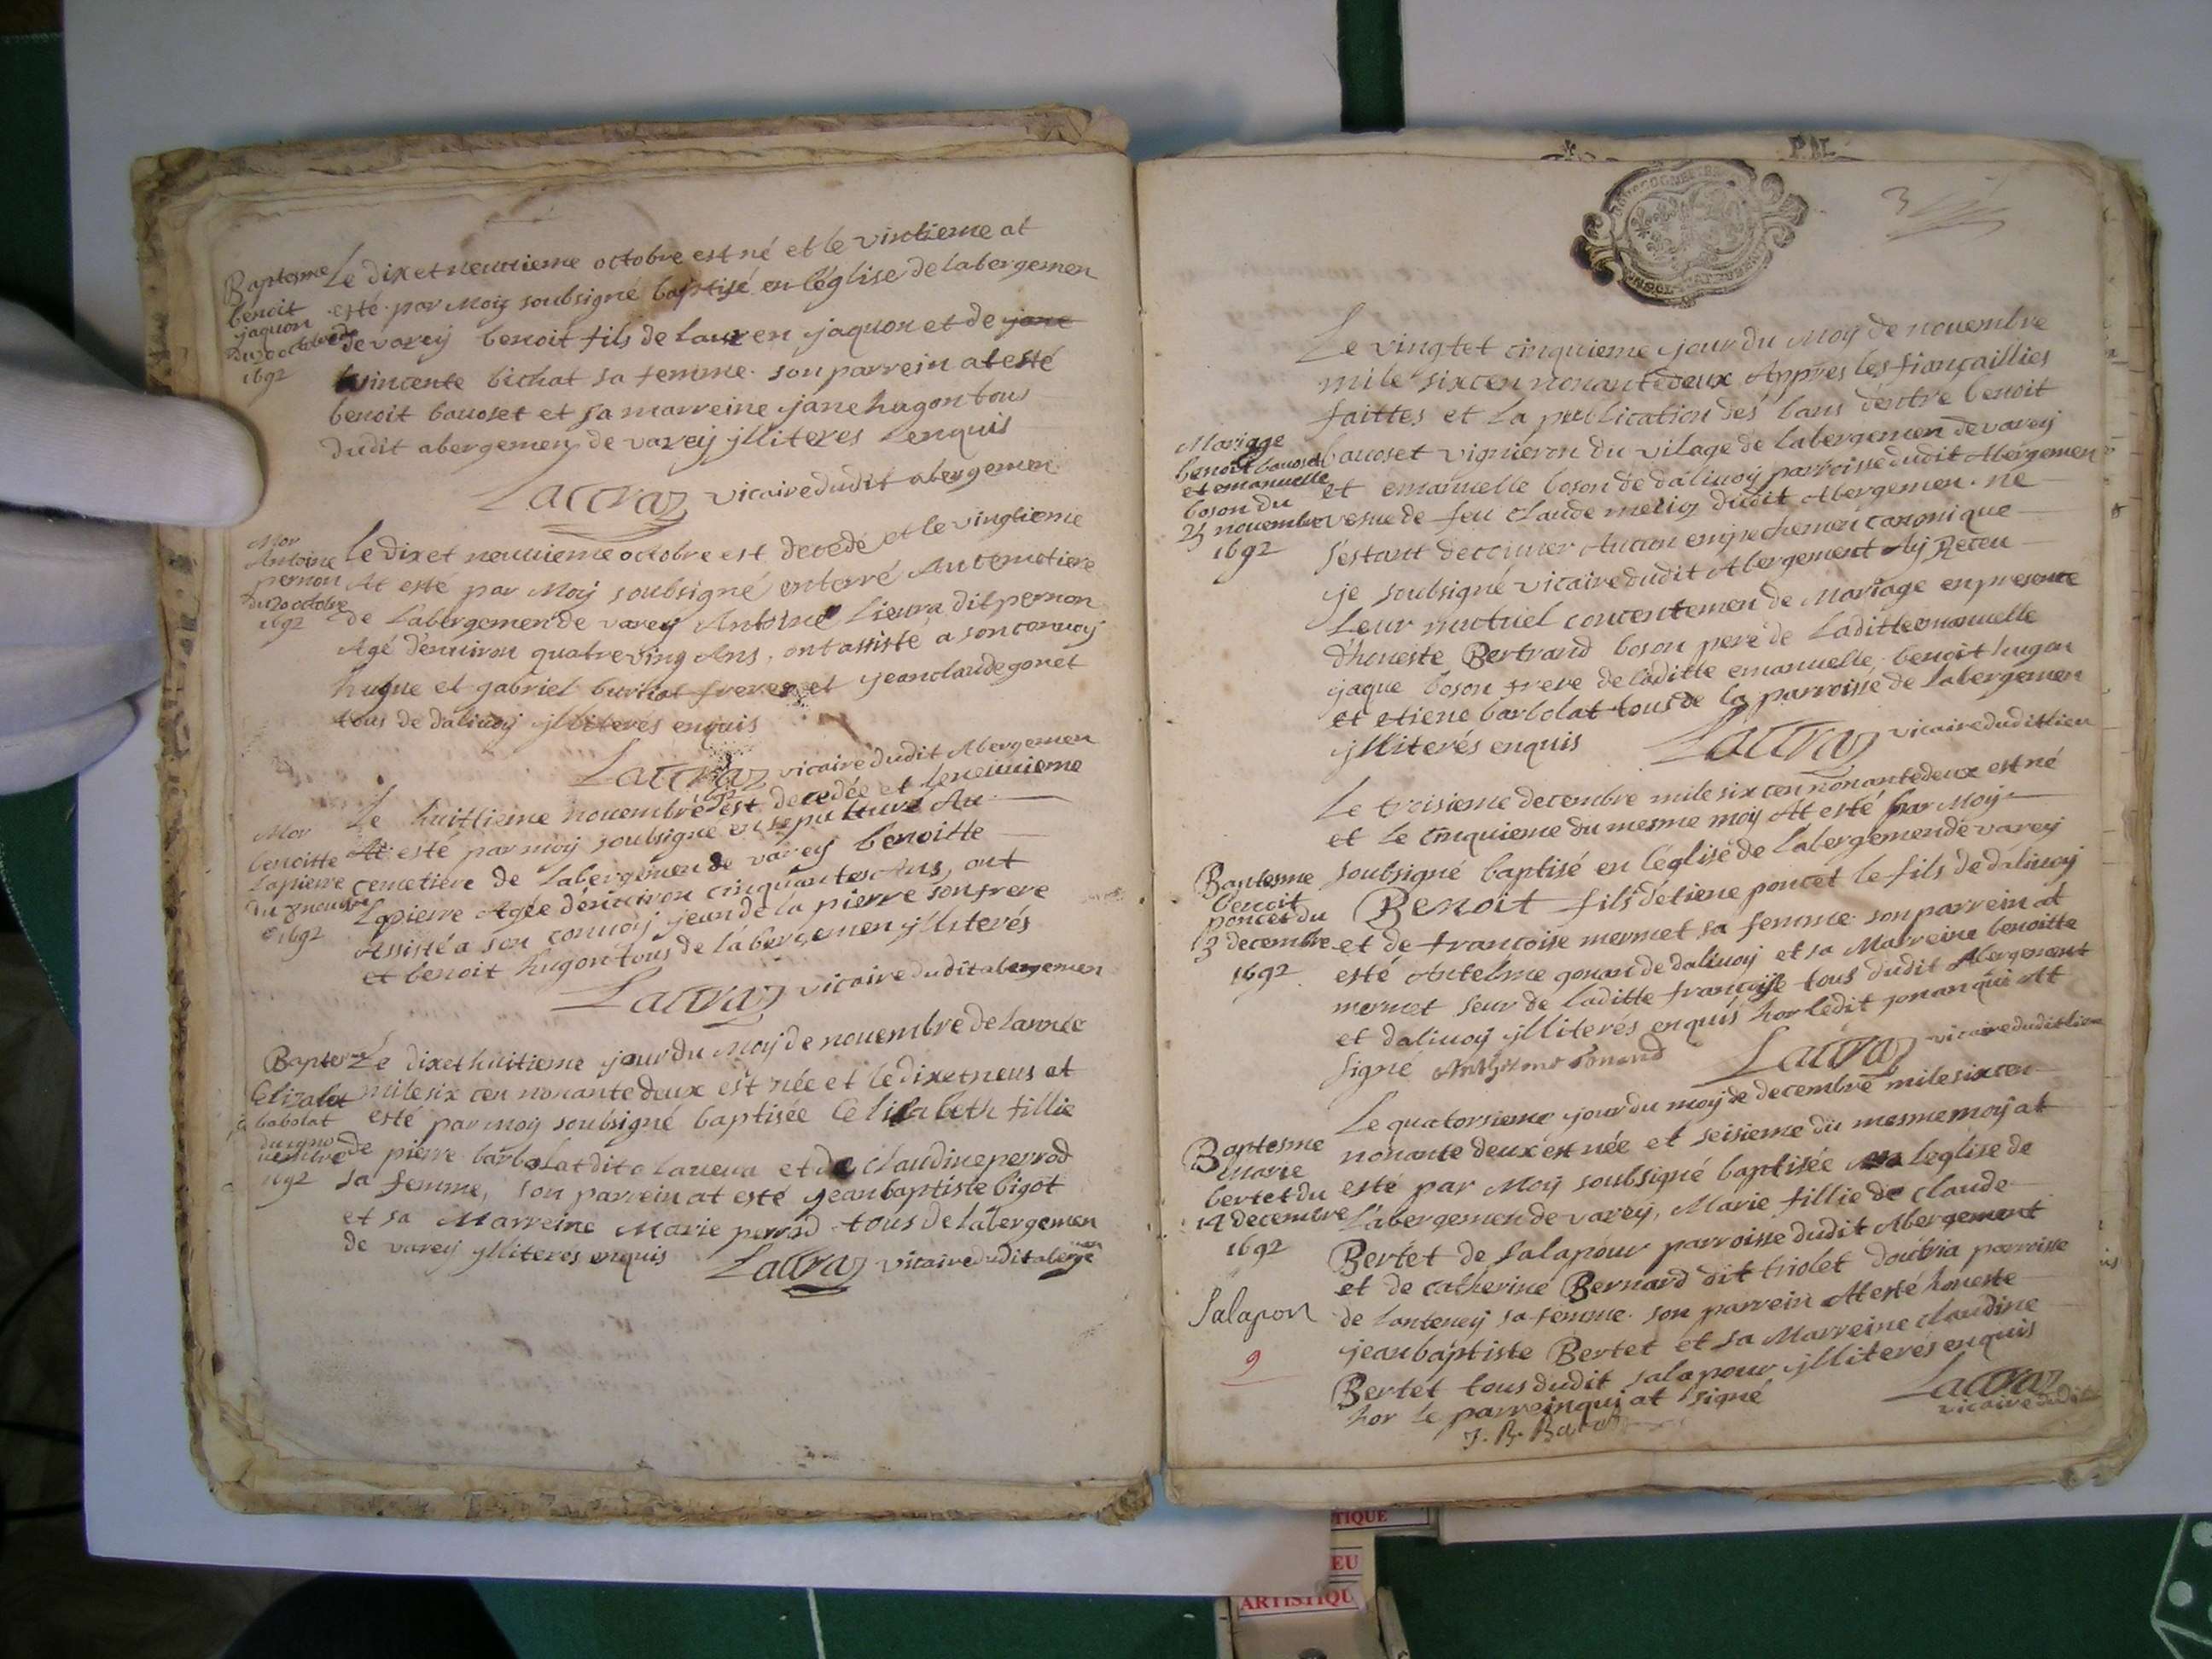 Baptesme
benoit
jaquon
du 20 octobre
1692
Le dixetneuuieme octobre est né et le vintieme at
esté par Moy soubsigné baptisé en léglise de labergemen
de varey benoit fils de lauren jaquon et de jane
vincente bichat sa femme son parrein at esté
benoit bauoset et sa marreine jane hugon tous
dudit abergemen de varey jlliteres enquis
Lacraz vicaire dudit abergemen
Mor
Antoine
pernon
du 20 octobre
1692
le dixet neuuieme octobre est decedé et le vingtieme
At esté par Moy soubsigné enterré Au cemetiere
de labergemen de varey Antoine Lieura dit pernon
Agé denuiron quatre ving Ans, ont assisté a son conuoy
hugue et gabriel burhat freres et jeanclaude gonet
tous de daliuoy jlliterés enquis
Lacraz vicaire dudit Abergemen
Mor
benoitte
lapierre
du 8 nouembre
1692
Le huittieme nouembre 1692 est decedée et leneuuieme
At esté par moy soubsigné ensepulturé Au
cemetiere de labergemen de varey benoitte
lapierre Agée denuiron cinquantes Ans, ont
Assisté a son conuoy jean de la pierre son frere
et benoit hugon tous de labergemen jlliterés
Lacraz vicaire dudit abergemen
Baptesme
Celizabet
babolat
1692
Le dixethuitieme jour du Moy de nouembre de lannée
mile six cen nonante deux est née et le dixetneus at
esté par moy soubsigné baptisée Celisabeth fillie
de pierre barbolat dit a laueua et de claudine perrod
sa femme, son parrein at esté jean baptiste bigot
et sa Marreine Marie perrod tous de labergemen
de varey jlliteres enquis Lacraz vicaire dudit aberge
3
Le vingtet cinquieme jour du Moy de nouembre
mile sixcen nonante deux Appres les fiançaillies
faittes et la publication des bans dentre benoit
Mariage
benoit bauoset
et emanuelle
boson du
25 nouembre
1692
bauoset vignieron du vilage de labergemen de varey
et emanuelle boson de daliuoy parroisse dudit Abergemen
vesue de feu claude melioz dudit Abergemen. ne
sestant decouuer Aucun empechemen canonique
je soubsigné vicaire dudit Abergement Ay Receu
Leur mutuel concentemen de Mariage en presence
dheneste Bertrand boson pere de laditte emanuelle
jaque boson frere de laditte emanuelle benoit hugon
et etiene barbolat tous de la parroisse de labergemen
jlliterés enquis Lacraz vicaire dudit lieu
Le troisieme decembre mile six cen nonante deux est né
et le cinquieme du mesme moy At esté par Moy
Baptesme
benoit
poncet du
3 decembre
1692
soubsigné baptisé en léglise de labergemen de varey
Benoit fils detiene poncet le fils de daliuoy
et de francoise mermet sa femme son parrein at
esté Antelme gonan de daliuoy et sa Marreine benoitte
mermet seur de laditte françoise tous dudit Abergement
et daliuoy jlliterés enquis hor ledit gonan qui At
signé Anthelme Gonand Lacraz vicaire dudit lieu
Le quatorsieme jour du moy de decembre mile sixcen
Baptesme
marie
bertet du
14 decembre
1692
nonante deux est née et seisieme du mesme moy at
esté par Moy soubsigné baptisée leglise de
labergemen de varey, Marie fillie de claude
Bertet de salapour parroisse dudit Abergement
et de catherine Bernard dit triolet doutria parroisse
Salapon
9
de lanteney sa femme. son parrein At esté honeste
jean baptiste Bertet et sa Marreine claudine
Bertet tous dudit salapour jlliterés enquis
hor le parrein qui at signé
Lacraz
vicaire dudit
TIQUE
EU
ARTISTIQU